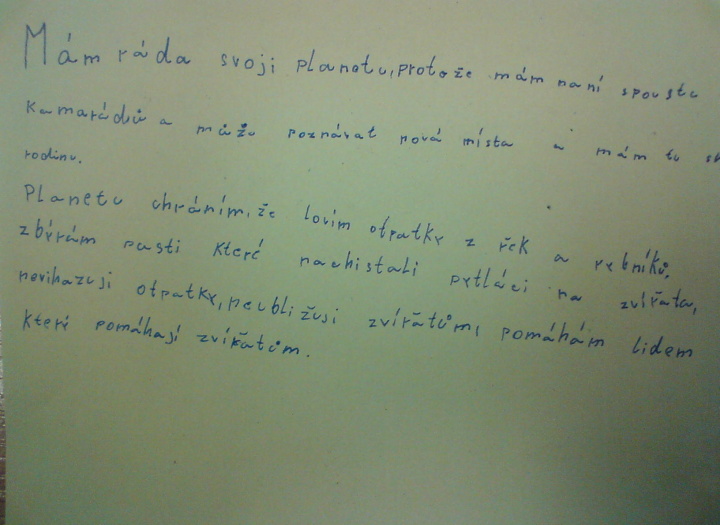 Mám ráda svoji planetu, protože mám na ní spoustu
kamarádů a můžu poznávat nová místa a mám tu
rodinu.
Planetu chráním, že lovím otpatky z řek a rybníků,
zbýrám pasti které nachistali pytláci na zvířata,
nevihazuji otpatky, neubližuji zvířatům, pomáhám lidem
které pomáhají zvířatům.